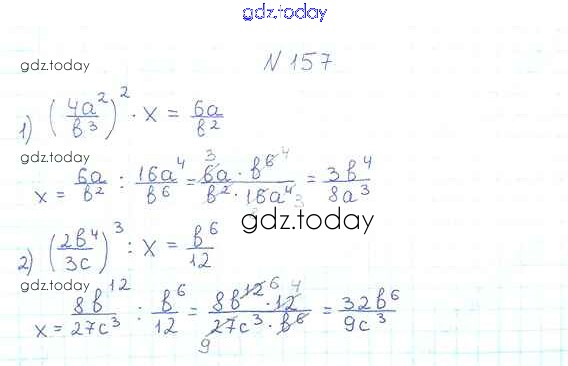 gdz.today
gdz.today
N 157
1) (4a²/b³)² · x = 6a/b²
gdz.today
x = 6a/b² : 16a⁴/b⁶ = 6a · b⁶/b² · 16a⁴ = 3b⁴/8a³
gdz.today
2) (2b⁴/3c)³ : x = b⁶/12
x = 8b¹²/27c³ : b⁶/12 = 8b¹² · 12/27c³ · b⁶ = 32b⁶/9c³